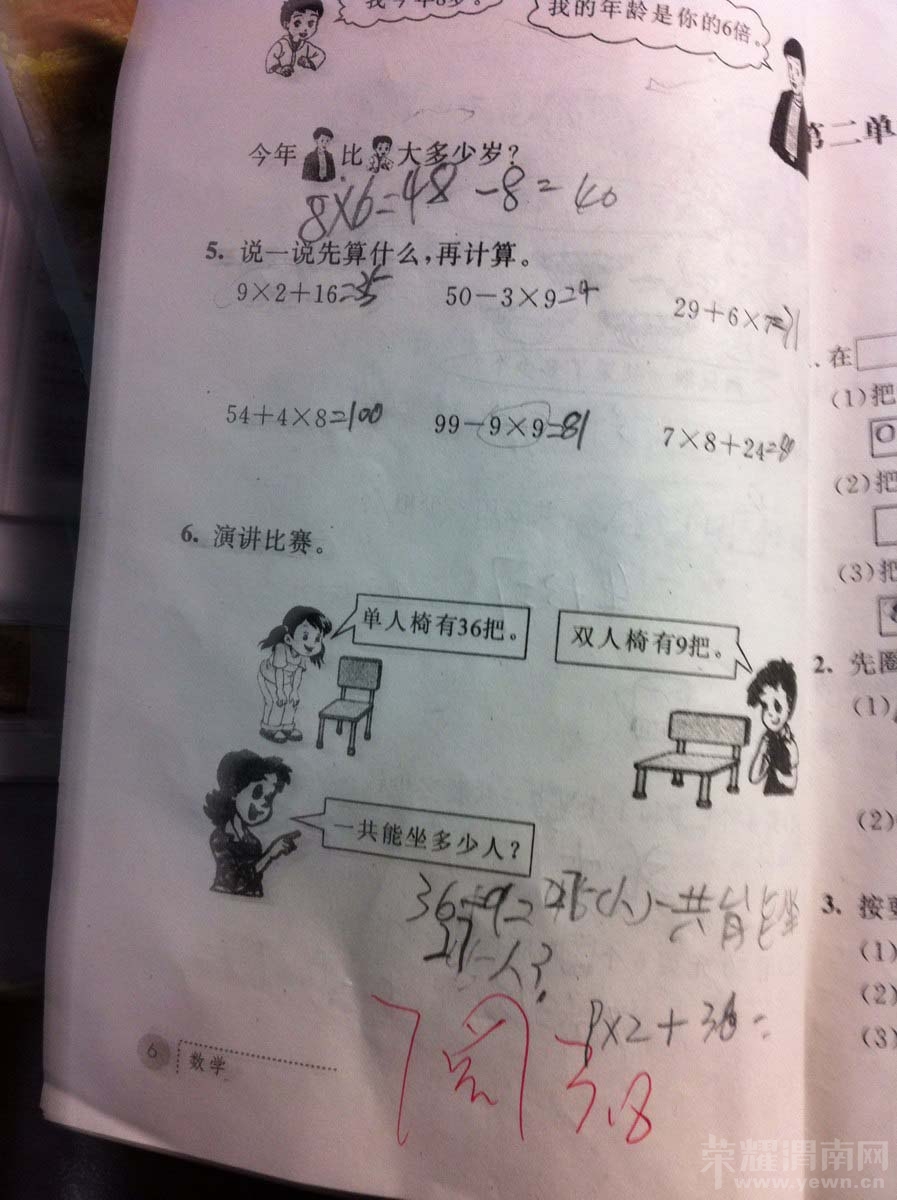 我今年8岁。
我的年龄是你的6倍。
今年 比 大多少岁?
8×6=48-8=40
5. 说一说先算什么,再计算。
9×2+16=35 50-3×9= 29+6×7=71
54+4×8=100 99-9×9=81 7×8+24=80
6. 演讲比赛。
单人椅有36把。
双人椅有9把。
一共能坐多少人?
36-9= (人)一共能坐
27 人?
9×2+36=
阅 3.8
6 数学
第二单
在
(1)把
(2)把
(3)把
2. 先圈
(1)
(2)
3. 按要
(1)
(2)
(3)
荣耀渭南网
www.yewn.cn